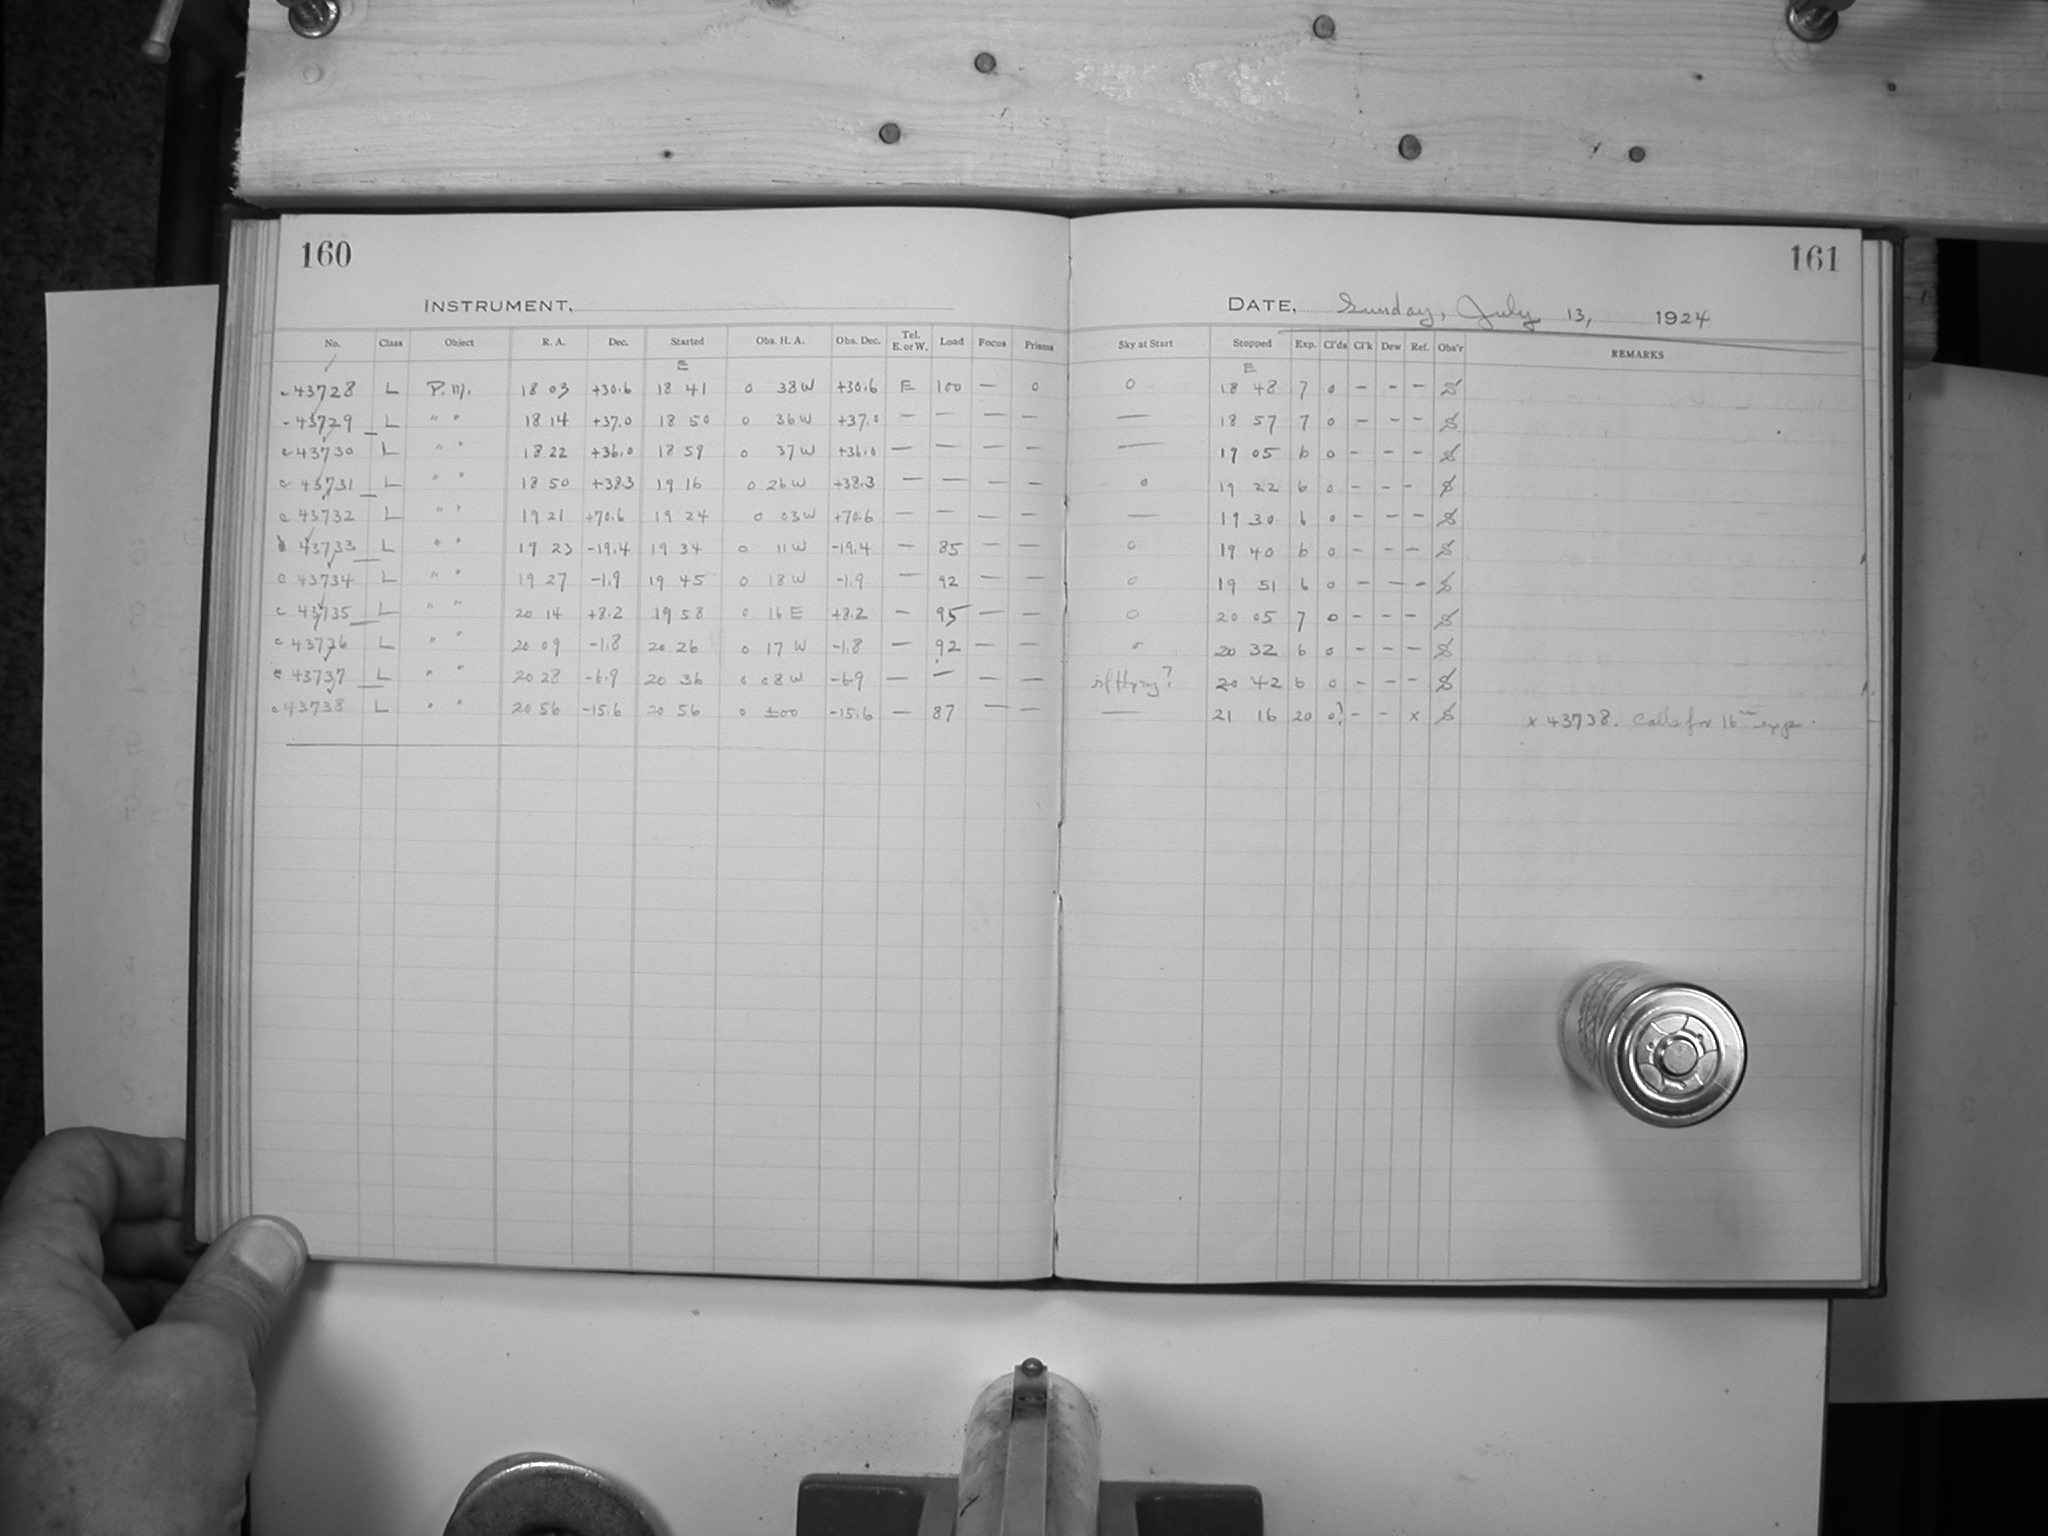 160
161
INSTRUMENT.
DATE, Sunday, July 13, 1924
No. Class Object R. A. Dec. Started Obs. H. A. Obs. Dec. Tel. E. or W. Load Focus Prisms Sky at Start Stopped Exp. Cl'ds Cl'k Dew Ref. Obs'r REMARKS
E E
c 43728 L P. M. 18 03 +30.6 18 41 0 38 W +30.6 E 100 — 0 0 18 48 7 0 - - - S
c 43729 L " " 18 14 +37.0 18 50 0 36 W +37.0 — — — — — 18 57 7 0 - - - S
c 43730 L " " 18 22 +36.0 18 59 0 37 W +36.0 — — — — — 19 05 6 0 - - - S
c 43731 L " " 18 50 +38.3 19 16 0 26 W +38.3 — — — — 0 19 22 6 0 - - - S
c 43732 L " " 19 21 +70.6 19 24 0 03 W +70.6 — — — — — 19 30 6 0 - - - S
43733 L " " 19 23 -19.4 19 34 0 11 W -19.4 — 85 — — 0 19 40 6 0 - - - S
c 43734 L " " 19 27 -1.9 19 45 0 18 W -1.9 — 92 — — 0 19 51 6 0 - - - S
c 43735 L " " 20 14 +8.2 19 58 0 16 E +8.2 — 95 — — 0 20 05 7 0 - - - S
c 43736 L " " 20 09 -1.8 20 26 0 17 W -1.8 — 92 — — 0 20 32 6 0 - - - S
c 43737 L " " 20 28 -6.9 20 36 0 08 W -6.9 — — — — 20 42 6 0 - - - S
c 43738 L " " 20 56 -15.6 20 56 0 ±00 -15.6 — 87 — — — 21 16 20 0? - - x S x 43738. Calls for 16m exp.